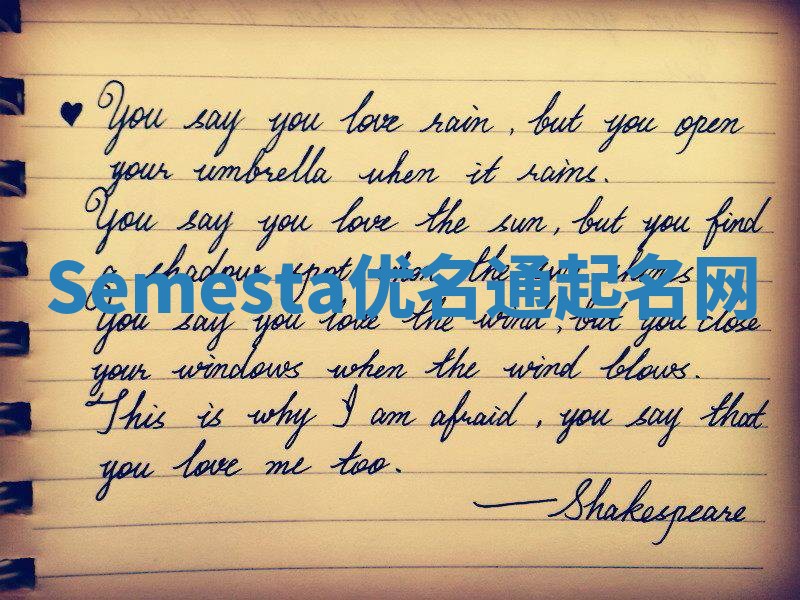 ♥ You say you love rain, but you open
your umbrella when it rains.
You say you love the sun, but you find
a shadow spot when the sun shines
Semesta优名通起名网
You say you love the wind, but you close
your windows when the wind blows.
This is why I am afraid, you say that
you love me too.
—Shakespeare